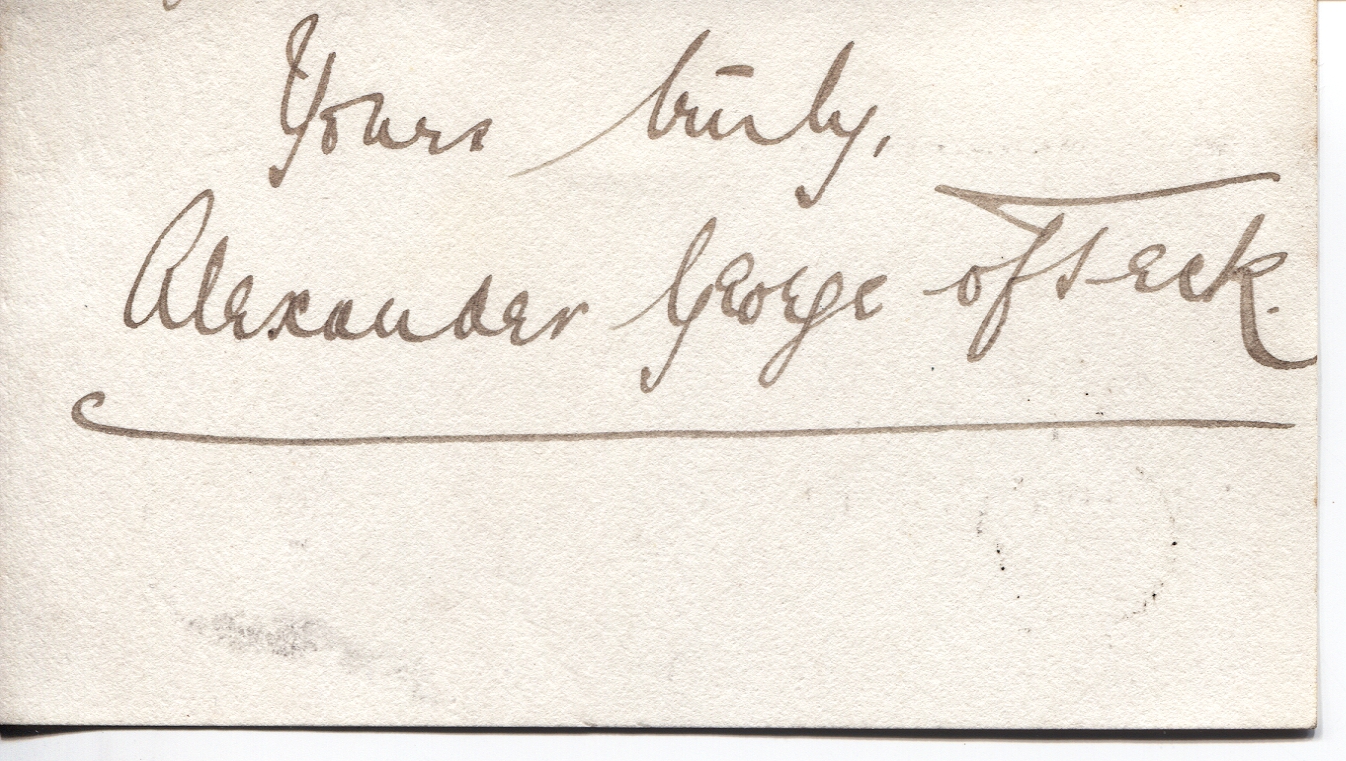 Yours truly,
Alexander George of Teck.